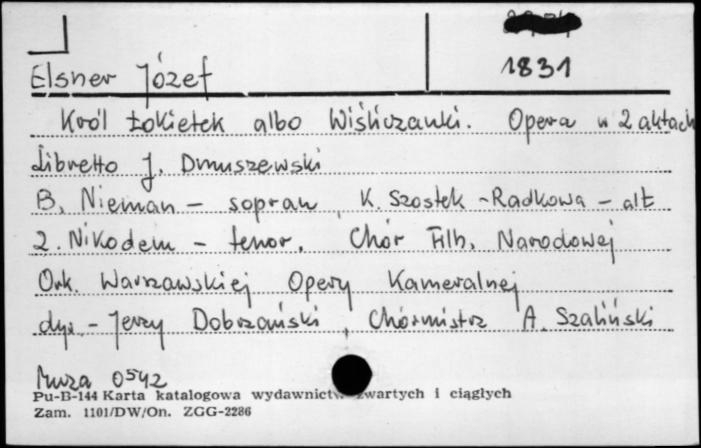 1831
Elsner Józef
Król Łokietek albo Wiśliczanki. Opera w 2 aktach
Libretto J. Dmuszewski
B. Nieman - sopran, K. Szostek-Radkowa - alt
Z. Nikodem - tenor. Chór Filh. Narodowej
Ork. Warszawskiej Opery Kameralnej
dyr. - Jerzy Dobrzański, Chórmistrz A. Szaliński
Muza 0542
Pu-B-144 Karta katalogowa wydawnictw zwartych i ciągłych
Zam. 1101/DW/On. ZGG-2286